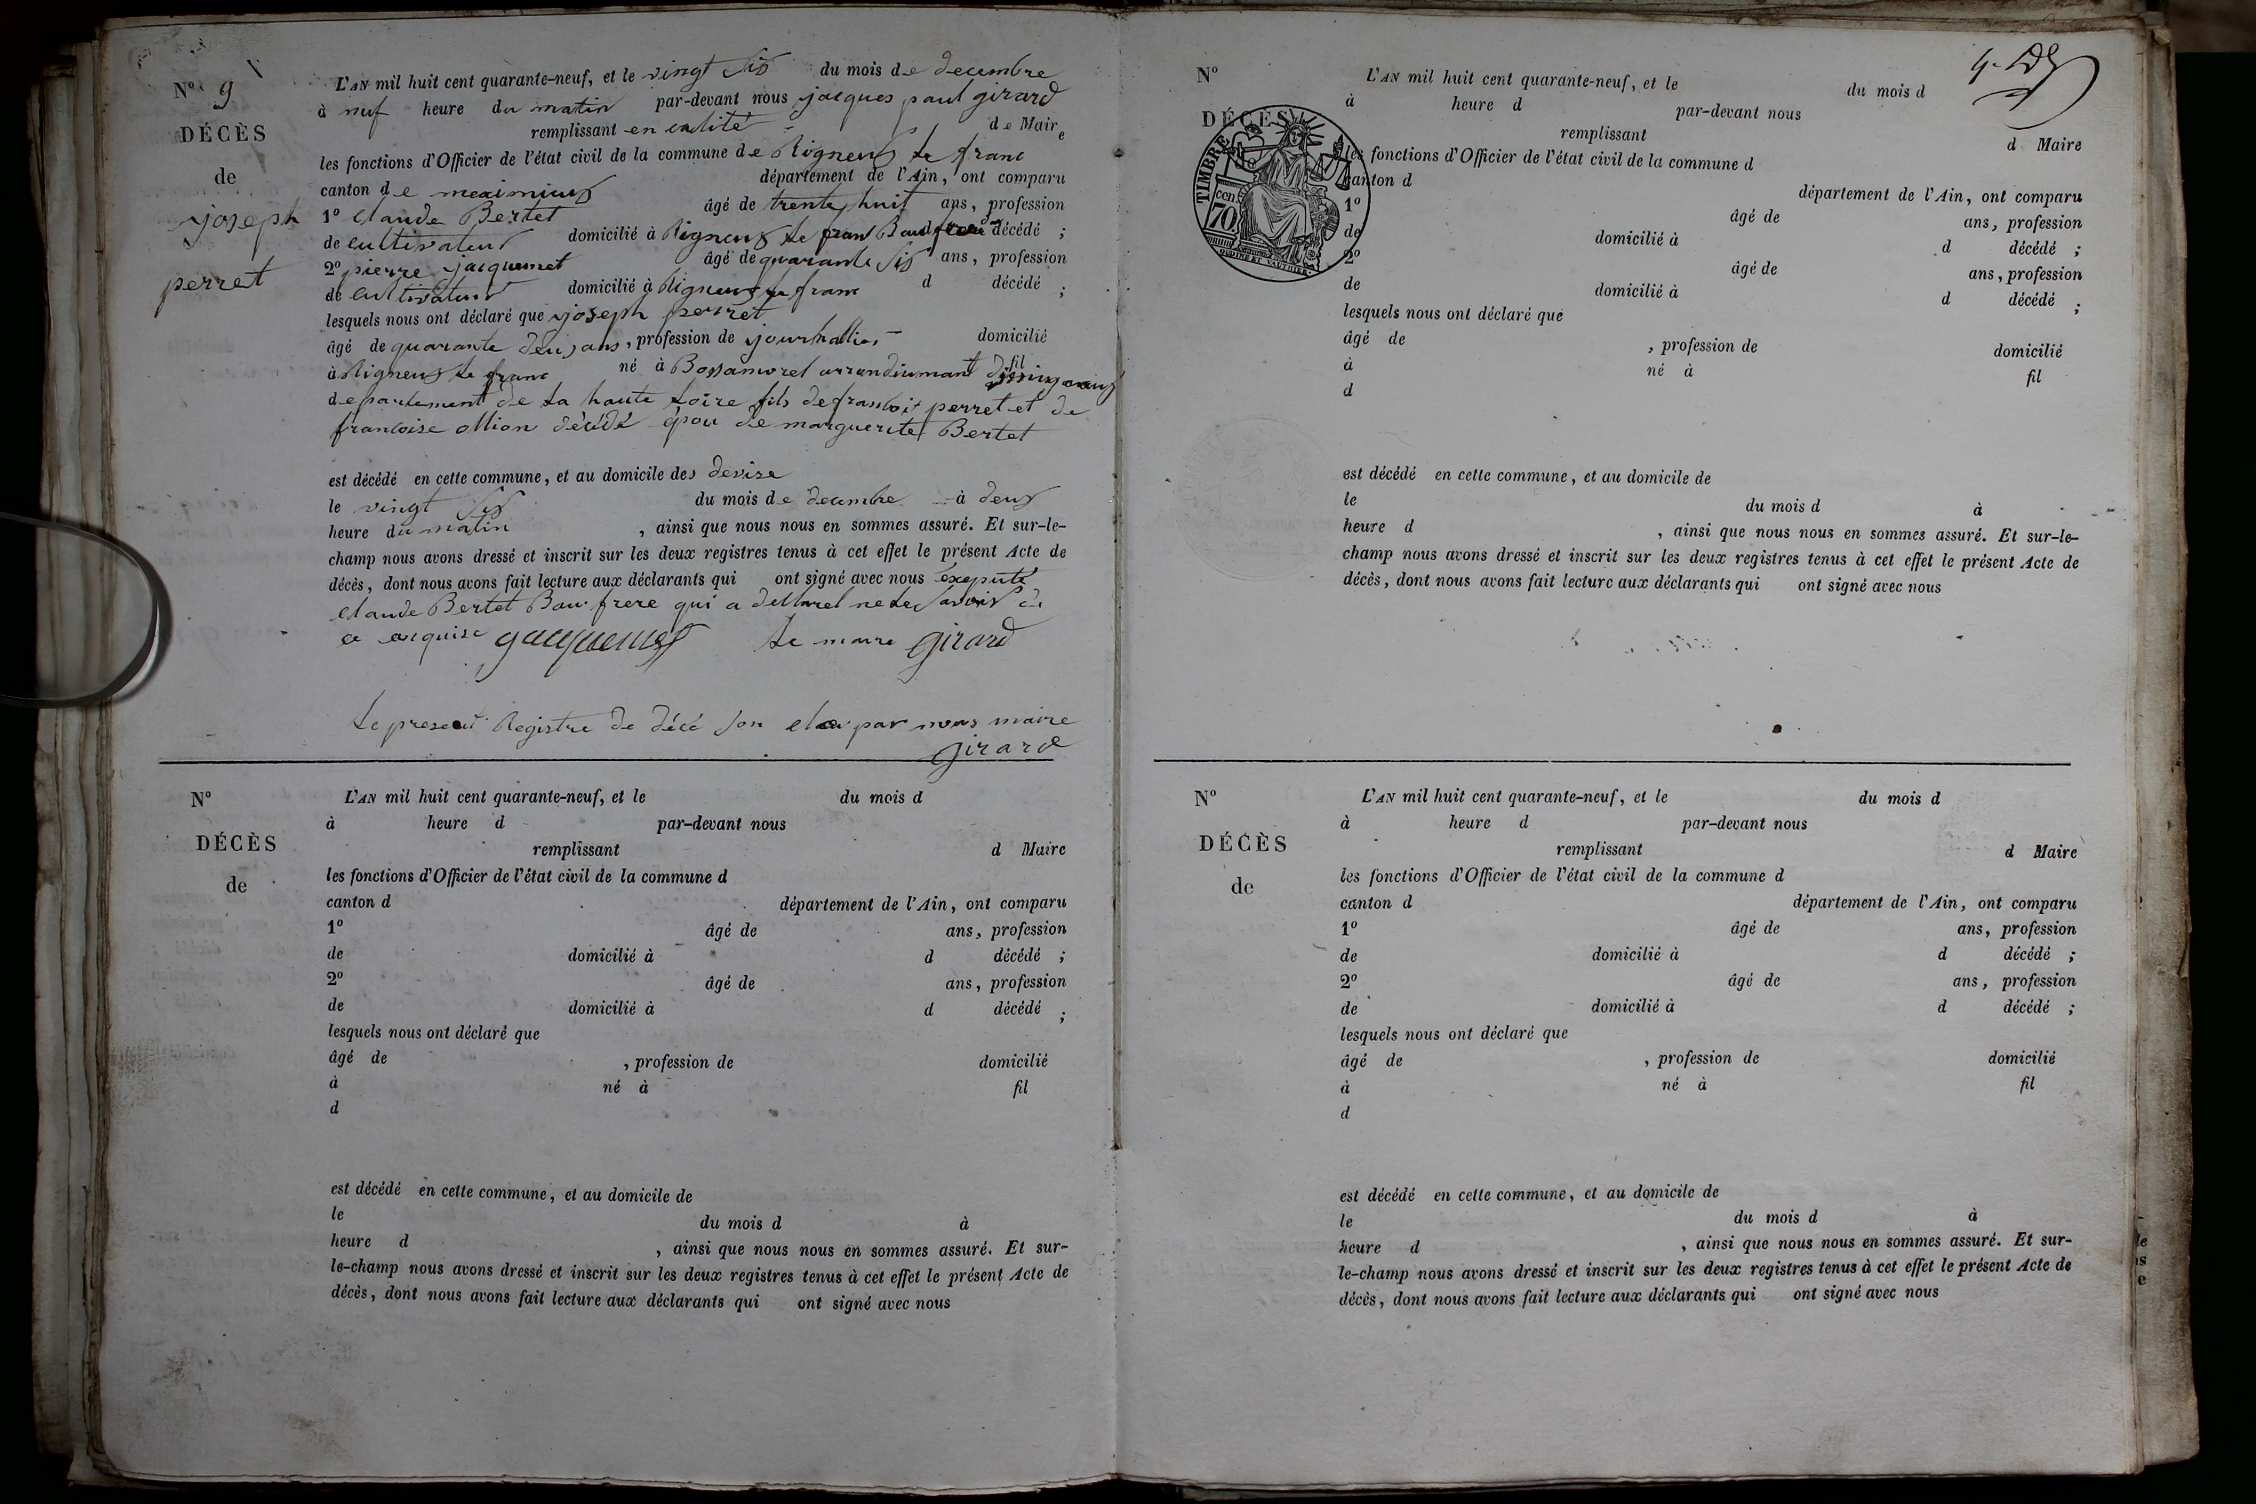 N° 9
DÉCÈS
de
joseph
perret
L'AN mil huit cent quarante-neuf, et le vingt six du mois de decembre
à neuf heure du matin par-devant nous jacques paul girard
remplissant en calité de Maire
les fonctions d'Officier de l'état civil de la commune de Rigneux le franc
canton de meximieux département de l'Ain, ont comparu
1° claude Bertet âgé de trente huit ans, profession
de cultivateur domicilié à Rigneux le franc Beaufrere décédé ;
2° pierre jacquemet âgé de quarante six ans, profession
de cultivateur domicilié à Rigneux le franc d décédé ;
lesquels nous ont déclaré que joseph perret
âgé de quarante deux ans, profession de journallier domicilié
à Rigneux le franc né à Bossamorel arrondiumant fil
departement de la haute Loire fils de francois perret et de
francoise ollion décédé épou de marguerite Bertet
est décédé en cette commune, et au domicile des devise
le vingt six du mois de decembre à deux
heure du matin , ainsi que nous nous en sommes assuré. Et sur-le-
champ nous avons dressé et inscrit sur les deux registres tenus à cet effet le présent Acte de
décès, dont nous avons fait lecture aux déclarants qui ont signé avec nous exepuité
claude Bertet Bau frere qui a declarel ne le savoir de
ce enquise jacquemet Le maire girard
Le present Registre de décé son par nous maire
girard
N°
DÉCÈS
de
L'AN mil huit cent quarante-neuf, et le du mois d
à heure d par-devant nous
remplissant d Maire
les fonctions d'Officier de l'état civil de la commune d
canton d département de l'Ain, ont comparu
1° âgé de ans, profession
de domicilié à d décédé ;
2° âgé de ans, profession
de domicilié à d décédé ;
lesquels nous ont déclaré que
âgé de , profession de domicilié
à né à fil
d
est décédé en cette commune, et au domicile de
le du mois d à
heure d , ainsi que nous nous en sommes assuré. Et sur-
le-champ nous avons dressé et inscrit sur les deux registres tenus à cet effet le présent Acte de
décès, dont nous avons fait lecture aux déclarants qui ont signé avec nous
N°
DÉCÈS
TIMBRE
70 cen
OUDINE ET VAUTHIER
L'AN mil huit cent quarante-neuf, et le du mois d
à heure d par-devant nous
remplissant d Maire
les fonctions d'Officier de l'état civil de la commune d
canton d département de l'Ain, ont comparu
1° âgé de ans, profession
de domicilié à d décédé ;
2° âgé de ans, profession
de domicilié à d décédé ;
lesquels nous ont déclaré que
âgé de , profession de domicilié
à né à fil
d
est décédé en cette commune, et au domicile de
le du mois d à
heure d , ainsi que nous nous en sommes assuré. Et sur-le-
champ nous avons dressé et inscrit sur les deux registres tenus à cet effet le présent Acte de
décès, dont nous avons fait lecture aux déclarants qui ont signé avec nous
N°
DÉCÈS
de
L'AN mil huit cent quarante-neuf, et le du mois d
à heure d par-devant nous
remplissant d Maire
les fonctions d'Officier de l'état civil de la commune d
canton d département de l'Ain, ont comparu
1° âgé de ans, profession
de domicilié à d décédé ;
2° âgé de ans, profession
de domicilié à d décédé ;
lesquels nous ont déclaré que
âgé de , profession de domicilié
à né à fil
d
est décédé en cette commune, et au domicile de
le du mois d à
heure d , ainsi que nous nous en sommes assuré. Et sur-
le-champ nous avons dressé et inscrit sur les deux registres tenus à cet effet le présent Acte de
décès, dont nous avons fait lecture aux déclarants qui ont signé avec nous